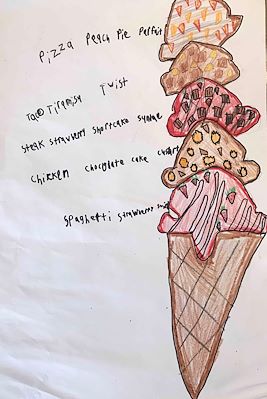 Pizza Peach Pie Parfait
Taco Tiramisu Twist
Steak strawberry shortcake
Chicken chocolate cake
Spaghetti strawberry